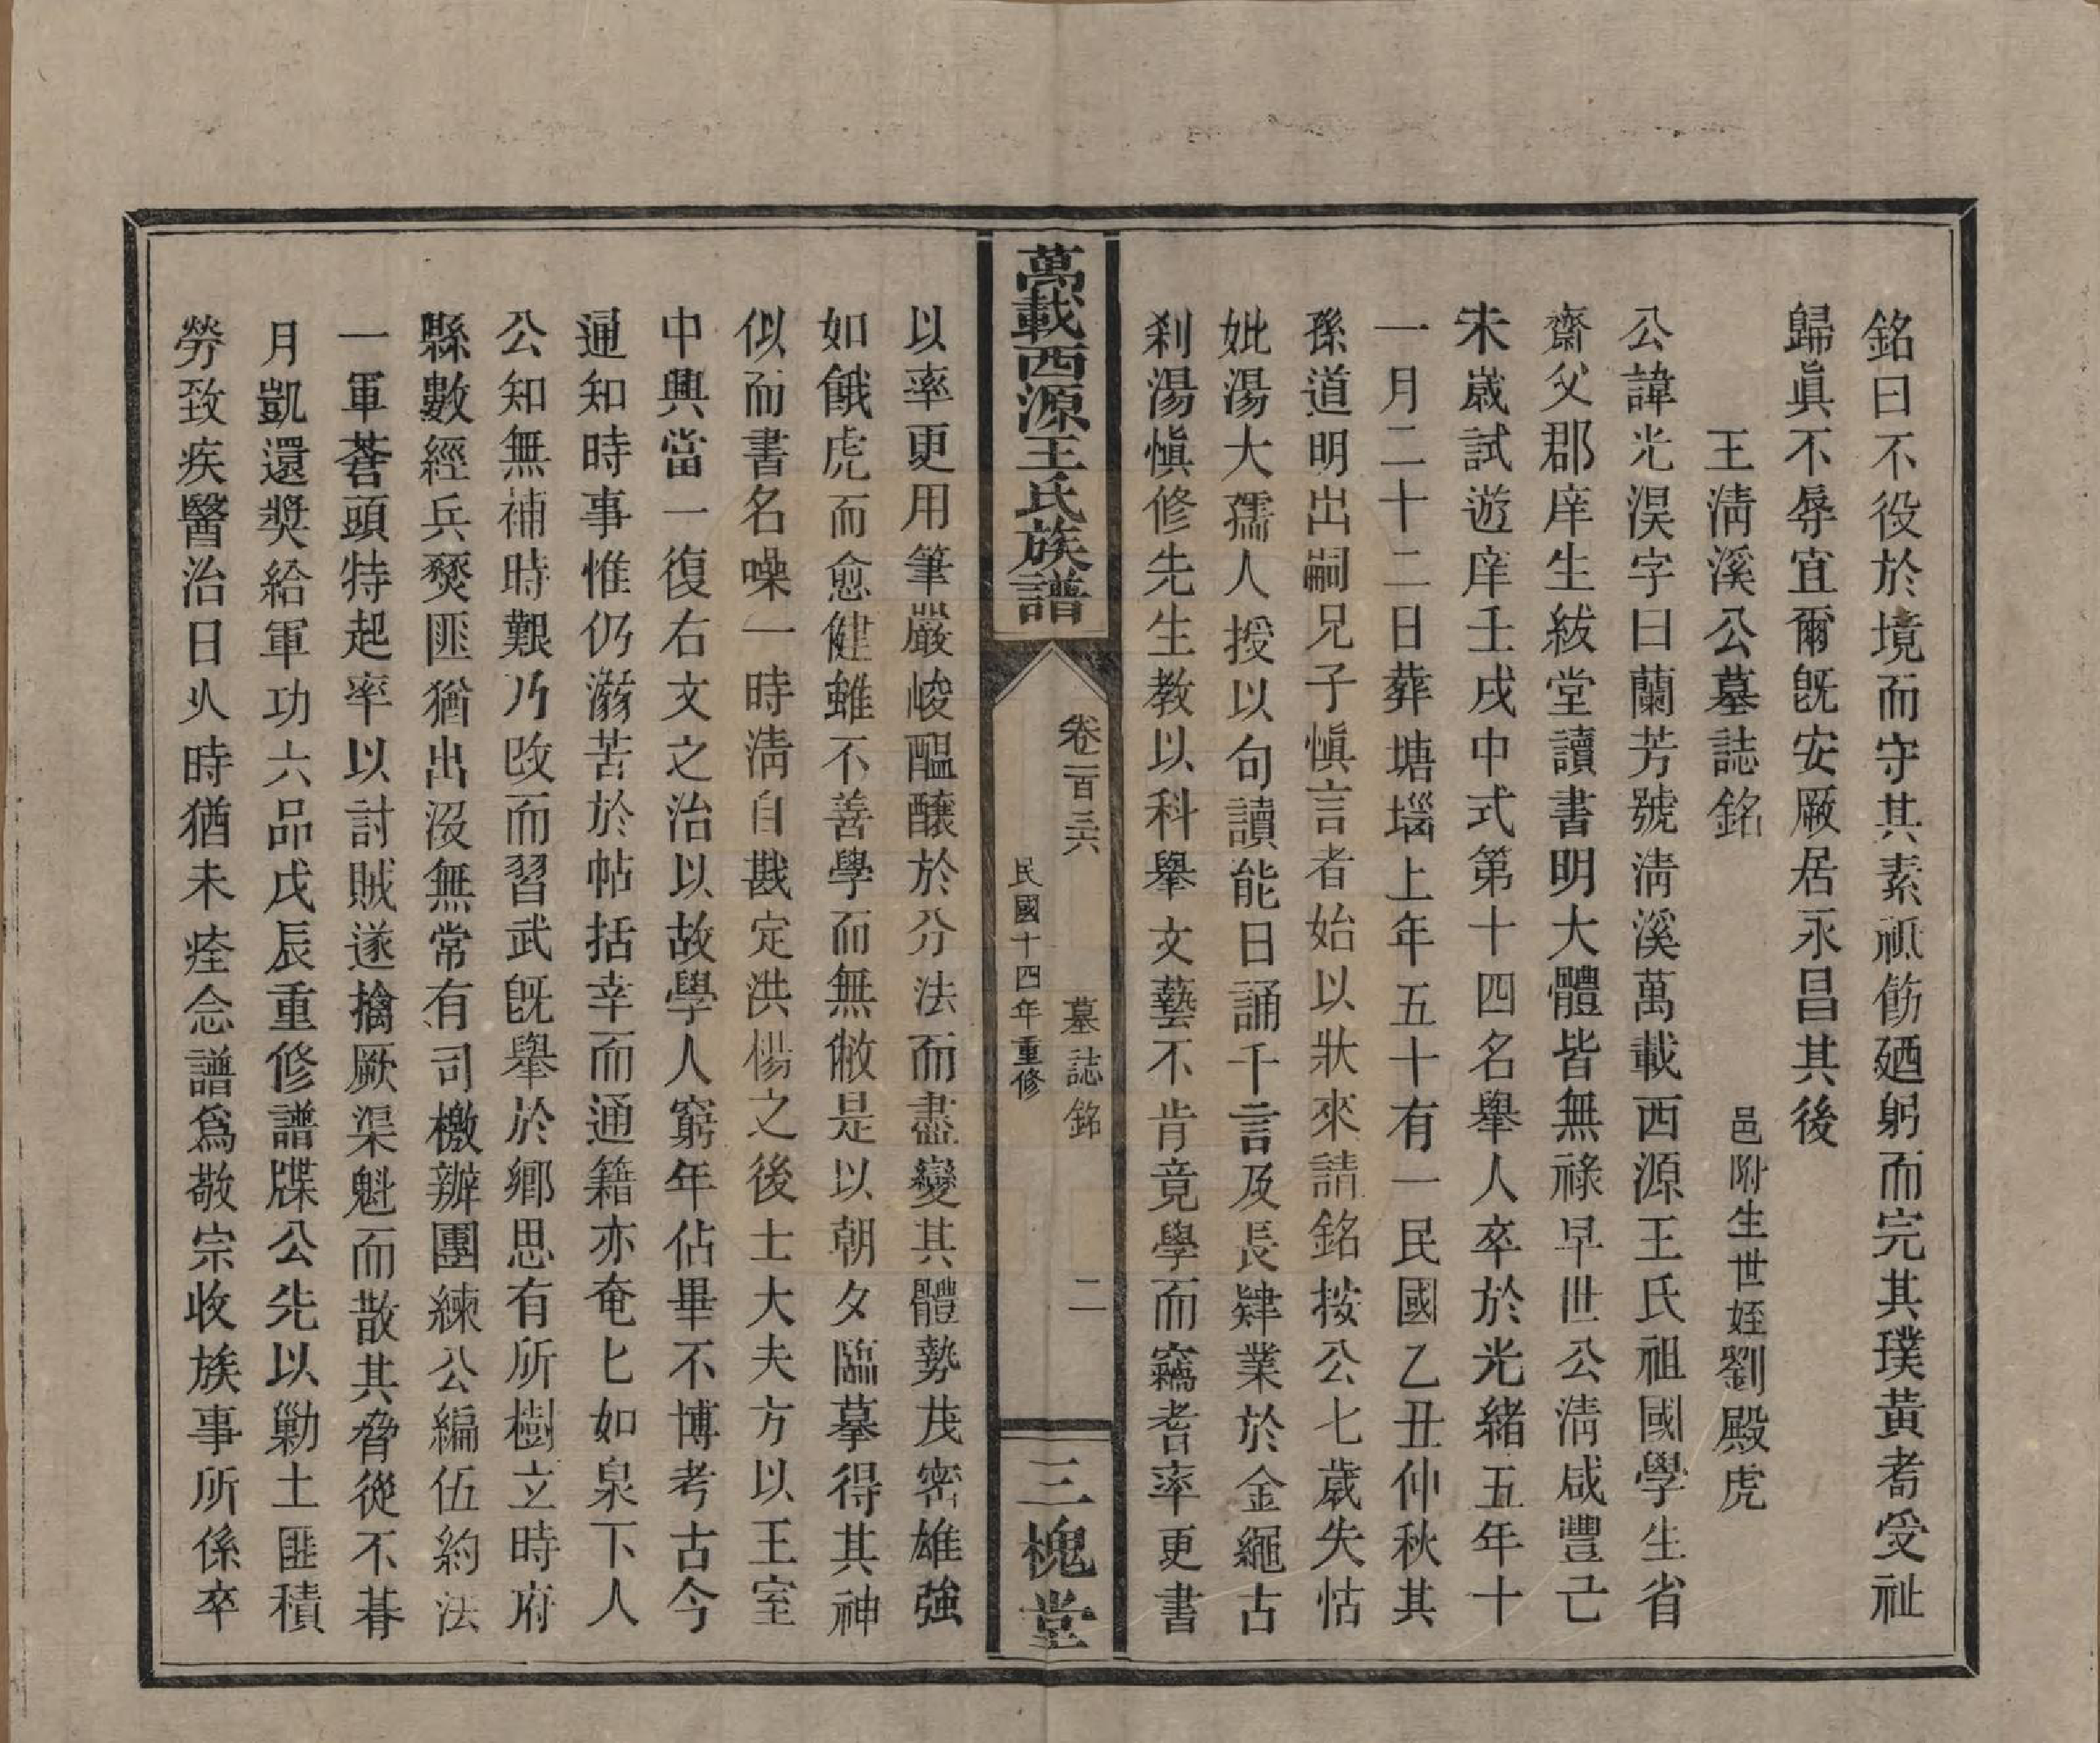 銘曰不役於境而守其素祗飭廼躬而完其璞黃耇受祉
歸眞不辱宜爾旣安厥居永昌其後
王淸溪公墓誌銘
邑附生世姪劉殿虎
公諱光淏字曰蘭芳號淸溪萬載西源王氏祖國學生省
齋父郡庠生紱堂讀書明大體皆無祿早世公淸咸豐己
未歲試遊庠壬戌中式第十四名舉人卒於光緒五年十
一月二十二日葬塘堖上年五十有一民國乙丑仲秋其
孫道明出嗣兄子愼言者始以狀來請銘按公七歲失怙
妣湯大孺人授以句讀能日誦千言及長肄業於金繩古
刹湯愼修先生敎以科舉文藝不肯竟學而竊耆率更書
萬載西源王氏族譜
卷一百三六
墓誌銘
二
民國十四年重修
三槐堂
以率更用筆嚴峻醞釀於分法而盡變其體勢茂密雄強
如餓虎而愈健雖不善學而無敝是以朝夕臨摹得其神
似而書名噪一時淸自戡定洪楊之後士大夫方以王室
中興當一復右文之治以故學人窮年佔畢不博考古今
通知時事惟仍溺苦於帖括幸而通籍亦奄匕如泉下人
公知無補時艱乃改而習武旣舉於鄕思有所樹立時府
縣數經兵燹匪猶出沒無常有司檄辦團練公編伍約法
一軍蒼頭特起率以討賊遂擒厥渠魁而散其脅從不朞
月凱還獎給軍功六品戊辰重修譜牒公先以勦土匪積
勞致疾醫治日久時猶未痊念譜爲敬宗收族事所係卒